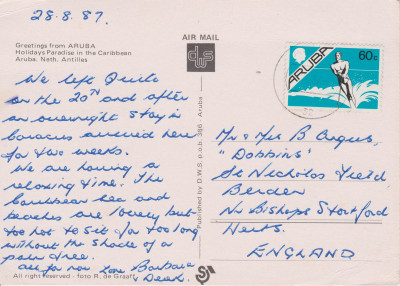 28.8.87.
AIR MAIL
Greetings from ARUBA
Holidays Paradise in the Caribbean
Aruba, Neth. Antilles
dws
ARUBA
60c
We left Quito
on the 20TH and after
an overnight stay in
Caracas arrived here
for two weeks.
We are having a
relaxing time. The
Caribbean sea and
beaches are lovely but
too hot to sit for too long
without the shade of a
palm tree.
All for now Love Barbara
& Derek.
Published by D.W.S. p.o.b. 366 - Aruba
Mr & Mrs B Angus,
"Dobbins"
St Nicholas Field
Berden
Nr Bishops Stortford
Herts.
ENGLAND
All right reserved - foto R. de Graaff